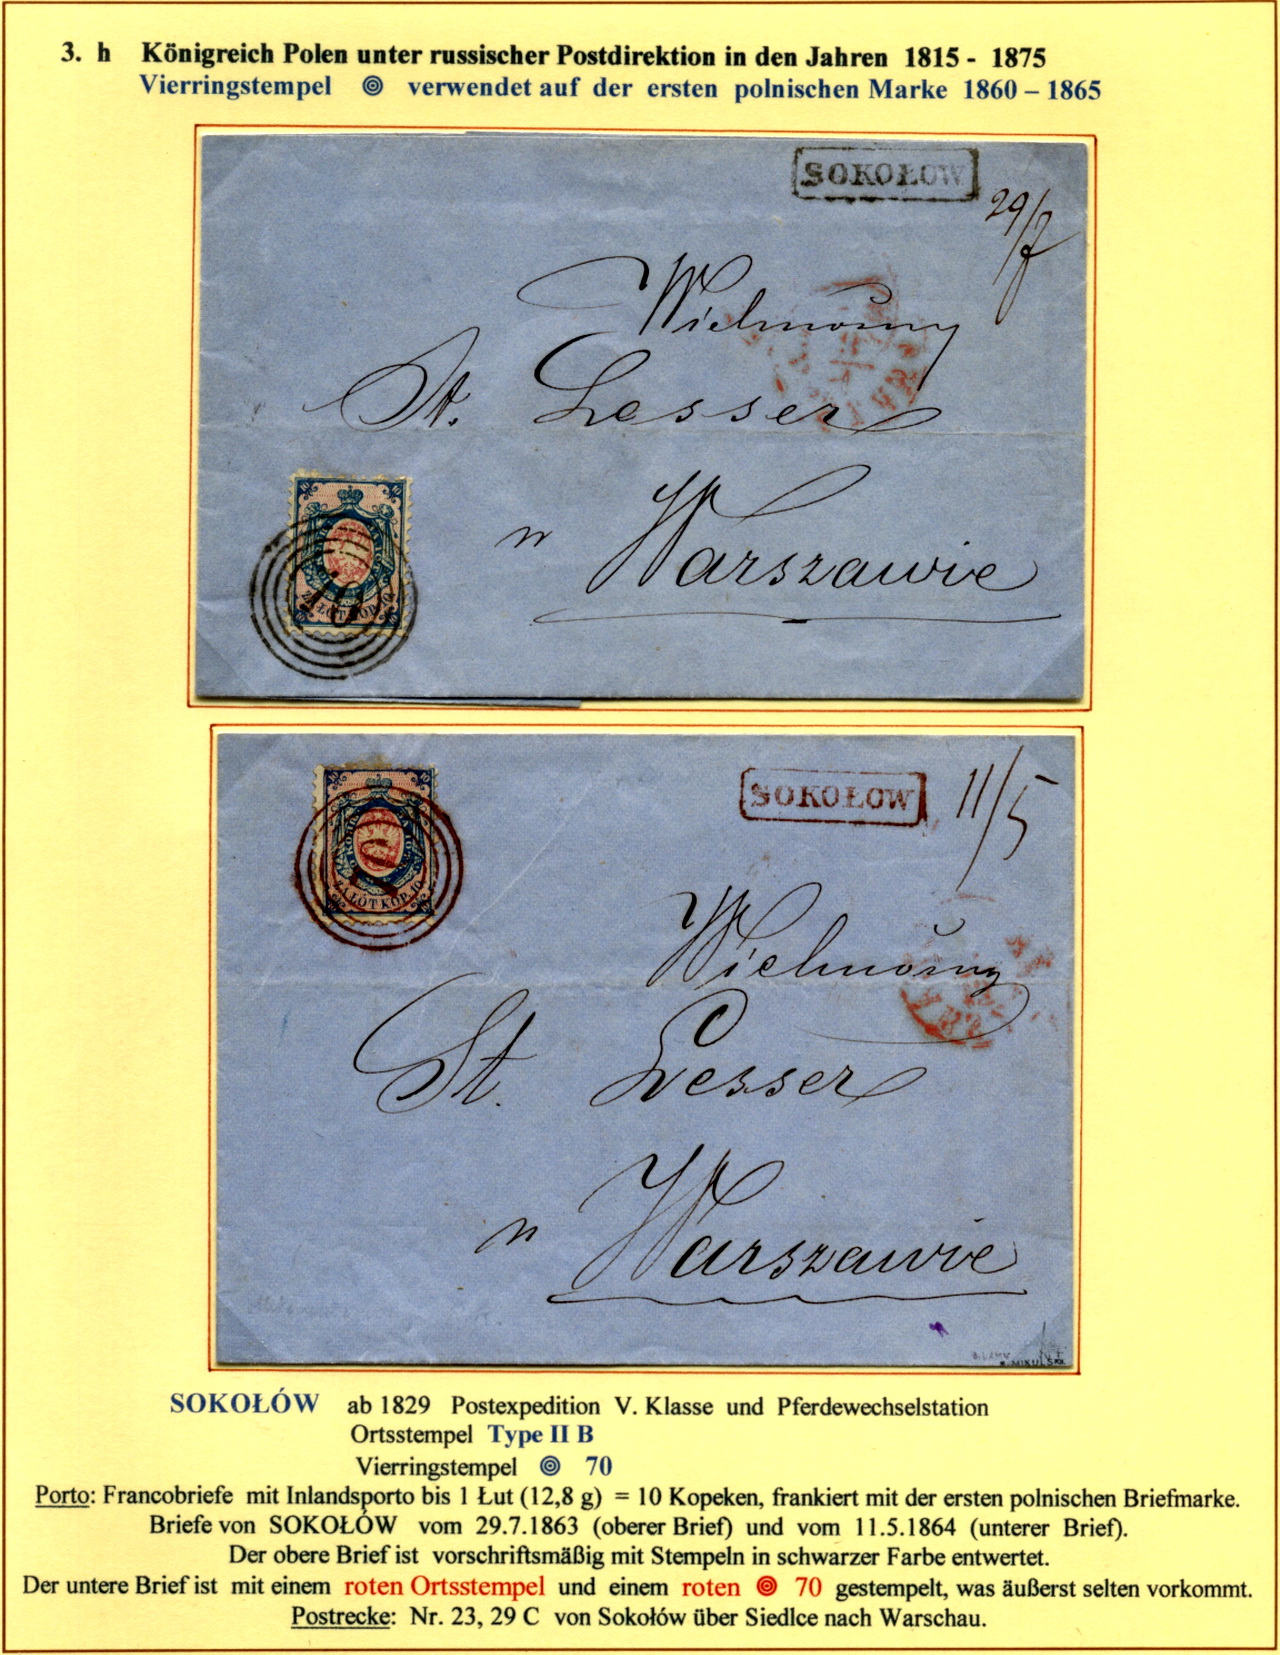 3. h Königreich Polen unter russischer Postdirektion in den Jahren 1815 - 1875
Vierringstempel verwendet auf der ersten polnischen Marke 1860 – 1865
SOKOŁOW
29/7
Wielmożny
St. Lesser
w Warszawie
10 10
ZA ŁÓT KOP. 10
70
SOKOŁOW
11/5
70
ZA ŁÓT KOP. 10
Wielmożny
St. Lesser
w Warszawie
MIKULSKI
SOKOŁÓW ab 1829 Postexpedition V. Klasse und Pferdewechselstation
Ortsstempel Type II B
Vierringstempel 70
Porto: Francobriefe mit Inlandsporto bis 1 Łut (12,8 g) = 10 Kopeken, frankiert mit der ersten polnischen Briefmarke.
Briefe von SOKOŁÓW vom 29.7.1863 (oberer Brief) und vom 11.5.1864 (unterer Brief).
Der obere Brief ist vorschriftsmäßig mit Stempeln in schwarzer Farbe entwertet.
Der untere Brief ist mit einem roten Ortsstempel und einem roten 70 gestempelt, was äußerst selten vorkommt.
Postrecke: Nr. 23, 29 C von Sokołów über Siedlce nach Warschau.